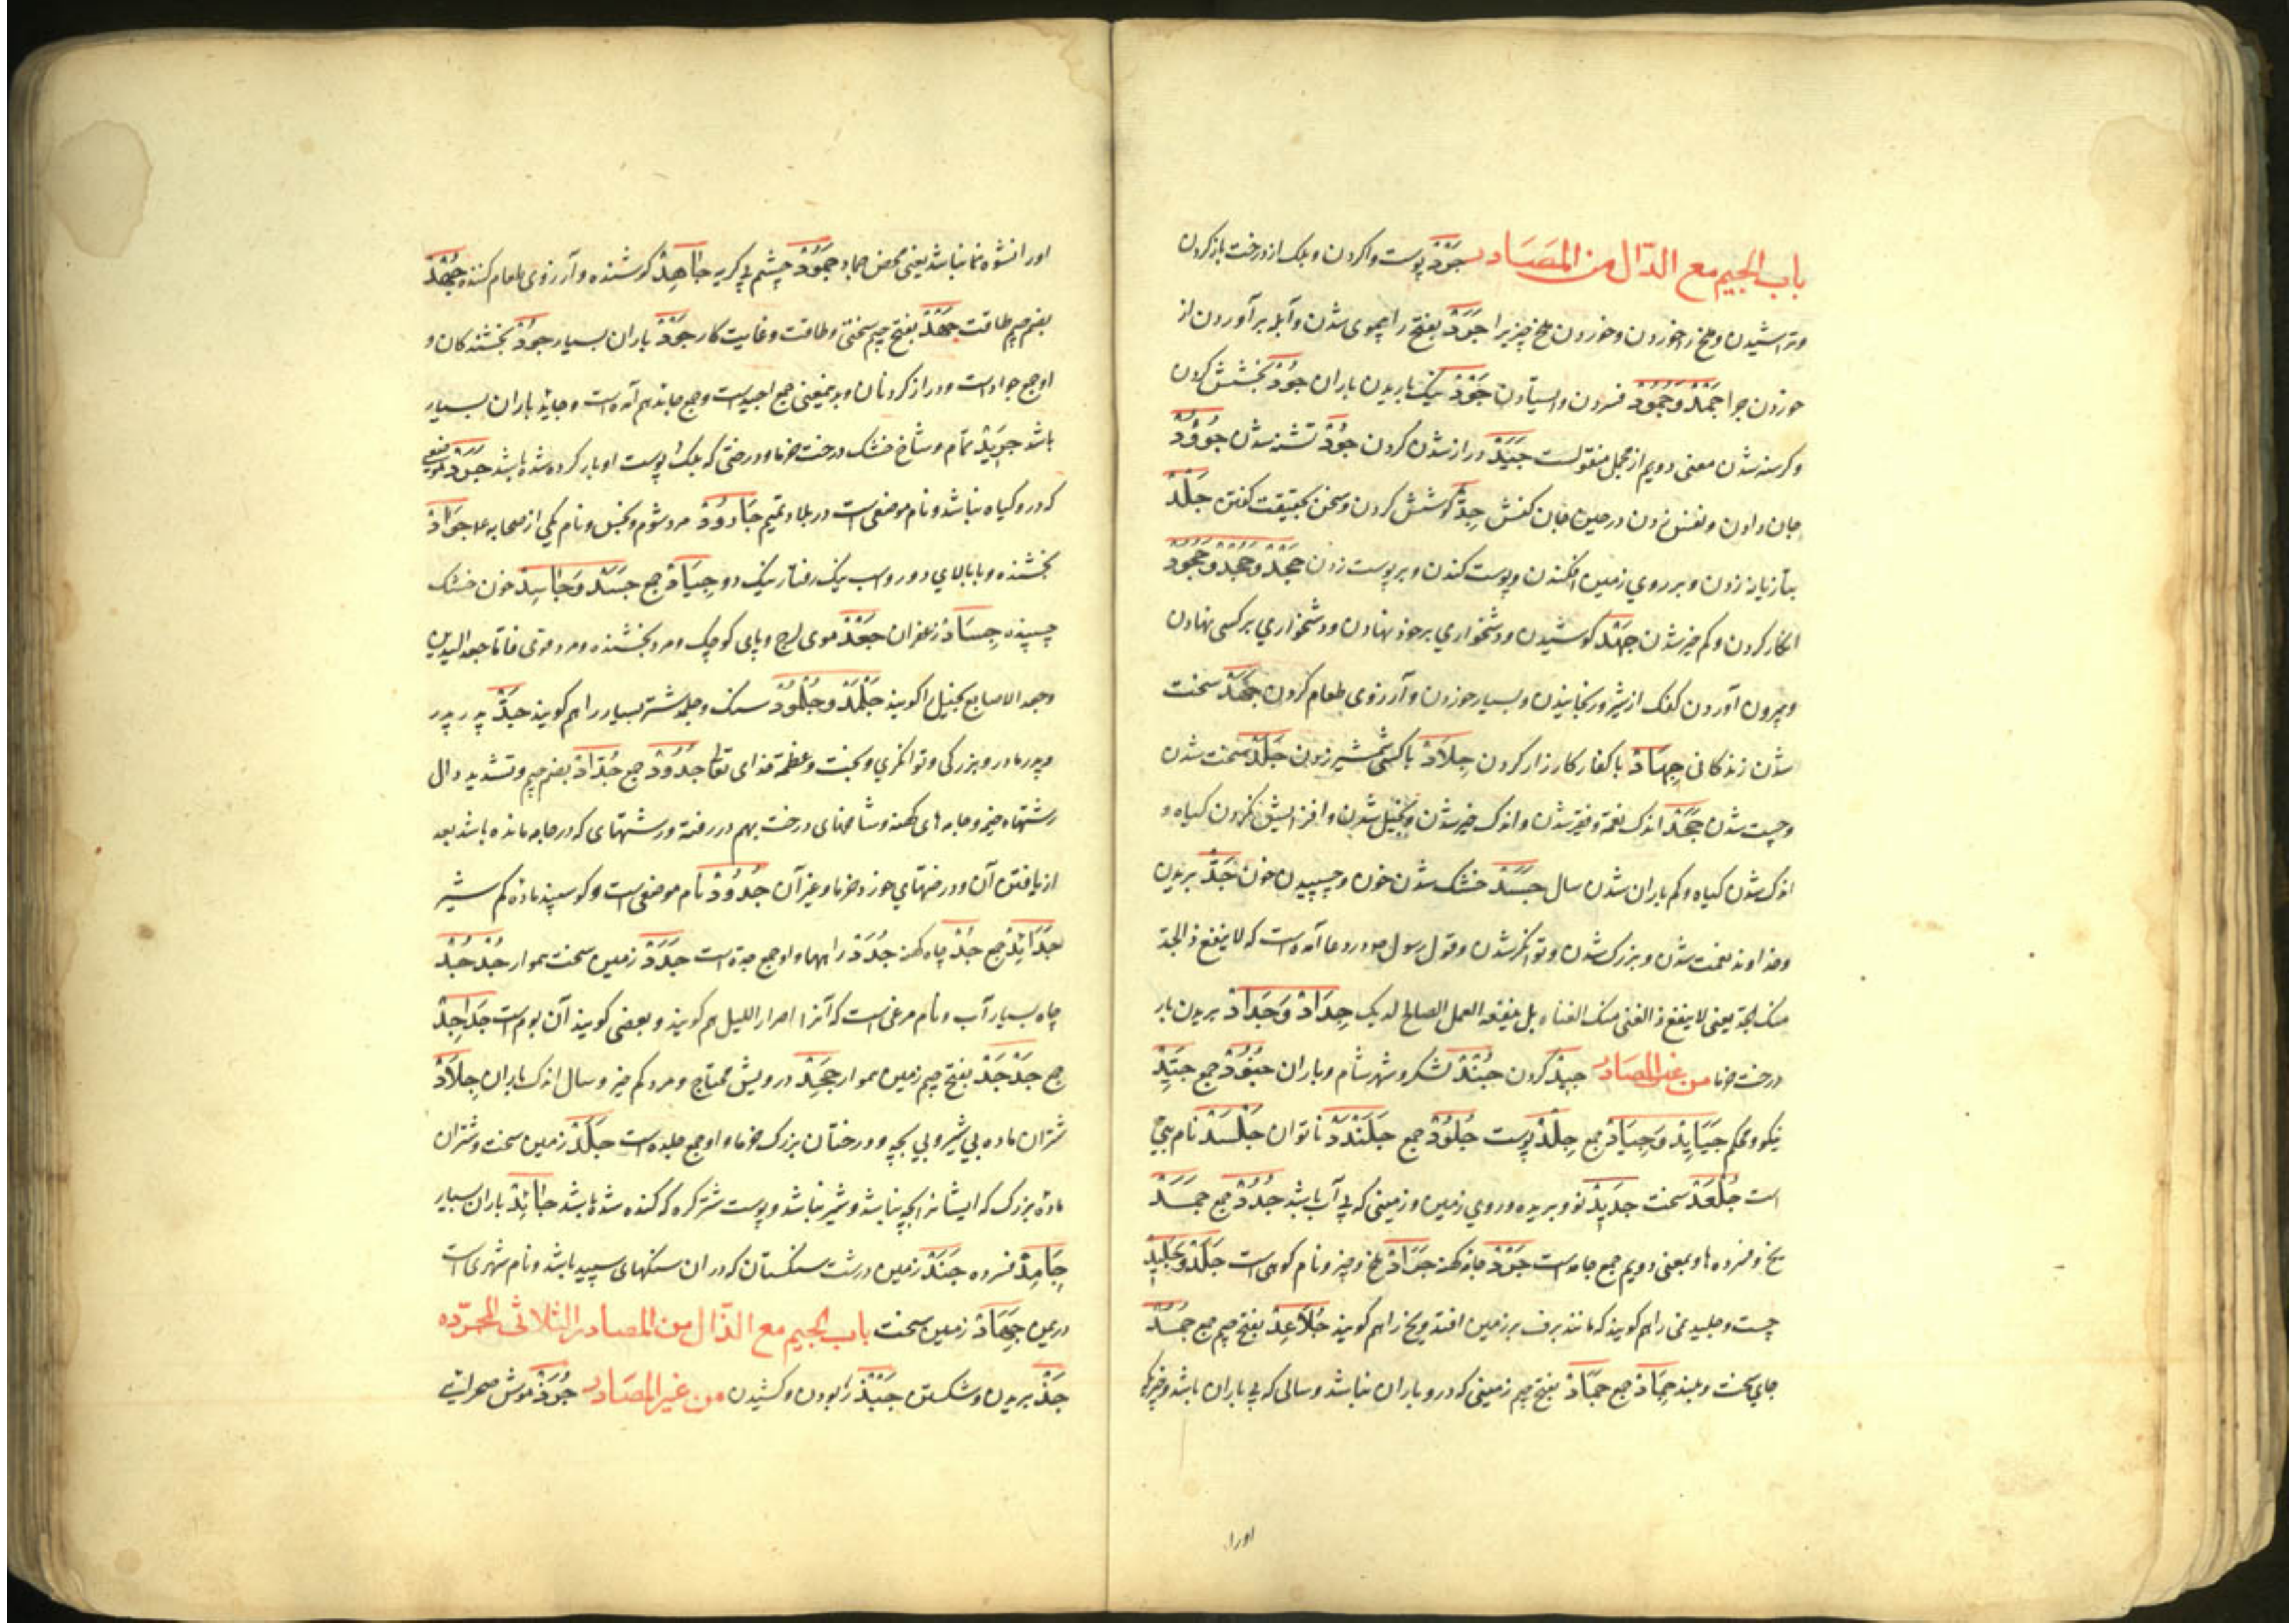 باب الجيم مع الدّال من المصَادر جَرْدْ پوست واکردن و بلک از درخت باز کردن
و تراشیدن و ملخ زاخوردن و خوردن ملخ چیزیرا جَرَدْ بفتح را بیموی شدن و آبله بر آوردن از
خوردن جراد جَمْدْ وَ جُمُودْ فسردن و ایستادن جَوْدْ نیک باریدن باران جُودْ بخشش کردن
و کرسنه شدن معنی دویم از مجمل منقولست جَیَدْ دراز شدن کردن جُوْدْ تشنه شدن جُوُوْدْ
جان دادن و نفس زدن در حین جان کنش جِدّْ کوشش کردن و سخن بحقیقت کفتن جَلْدْ
بتازیانه زدن و بر روي زمین افکندن و پوست کندن و بر پوست زدن جَحْدْ وَ جُحْدْ وَ جُحُودْ
انکار کردن و کم خیر شدن جَهْدْ کوشیدن و دشخواري بر خود نهادن و دشخواري بر کسی نهادن
و بیرون آوردن کفک از شیر و رنجانیدن و بسیار خوردن و آرزوی طعام کردن جَهَدْ سخت
شدن زندکانی جِهَادْ با کفار کارزار کردن جِلاَدْ با کسی شمشیر زدن جَلَدْ سخت شدن
و چست شدن جَحَدْ اندک نعمة و فقیر شدن و اندک خیر شدن و بخیل شدن و افزایش نکردن کیاه و
اندک شدن کیاه و کم باران شدن سال جَسَدْ خشک شدن خون و چسپیدن خون جَدّْ بریدن
و خداوند بخت شدن و بزرک شدن و توانکر شدن و قول رسول ص در دعا آمده است که لا ینفع ذ الجد
منک الجد یعنی لا ینفع ذ الغنی منک الغناه بل ینفعه العمل الصالح لدیک جِدَادْ وَ جَدَادْ بریدن بار
درخت خرما من غير المصَادر جید کردن جُنْدْ لشکر و شهر شام و یاران جُنُودْ جمع جَیّدْ
نیکو و محکم جَیَایِدْ وَ جِیَادْ جمع جِلْدْ پوست جُلُودْ جمع جَلَنْدَدْ ناتوان جَلْسَدْ نام بتي
است جُلْعَدْ سخت جَدِیدْ نو و بریده و روي زمین و زمینی که بی آب باشد جُدُدْ جمع جَمَدْ
یخ و فسرده ها و بمعنی دویم جمع جامد است جَرْدْ جامه کهنه جَرَادْ ملخ و چیز و نام کوهی است جَلْدْ وَ جَلِیدْ
چست و جلید نمی را هم کویند که مانند برف بر زمین افتد و یخ را هم کویند جَلاَعِدْ بفتح جیم جمع جُمُدْ
جاي سخت و بلند جِمَادْ جمع جَمَادْ بفتح جیم زمینی که درو باران نباشد و سالی که بی باران باشد و چیزی که
اورا
اورا نشو و نما نباشد یعنی محض جماد جَمُودْ چشم بی کریه جَاهِدْ کوشنده و آرزوی طعام کننده جُهْدْ
بضم جیم طاقت جَهْدْ بفتح جیم سختی و طاقت و غایت کار جَوْدْ باران بسیار جُودْ بخشندکان و
او جمع جواد است و دراز کردنان و بدین معنی جمع اجید است و جمع جاید هم آمده است و جاید باران بسیار
باشد جَرِیدْ تمام و شاخ خشک درخت خرما و درختی که بلک با پوست او باز کرده شده باشد جَرَدْ موضعی
که درو کیاه نباشد و نام موضعی است در بلاد تمیم جَارُودْ مرد شوم و بخیل و نام یکی از صحابه علا جَوَادْ
بخشنده و بابالاي دور و اسب نیک رفتار نیک دو جِیَادْ جمع جَسَدْ وَ جَاسِدْ خون خشک
چسپیده جِسَادْ زعفران جَعْدْ موی لرج و پای کوچک و مرد بخشنده و مرد قوی فاما جعد الیدین
و جعد الاصابع بخیل را کویند جَلْمَدْ وَ جُلْمُودْ سنک و جلمد شتر بسیار را هم کویند جَدّْ پدر پدر
و پدر مادر و بزرکی و توانکري و بخت و عظمة خدای تعالی جُدُودْ جمع جُدّادْ بضم جیم و تشدید دال
رشتهاء خیر و جامه های کهنه و شاخهای درخت بهم در رفته و رشتهای که در جامه مانده باشد بعد
از یافتن آن و درختهاي خورد خرما و غیر آن جُدُودْ نام موضعی است و کوسپند ماده کم شیر
جَدَائِدْ جمع جُدْ چاه کهنه جُدَدْ راهها و او جمع جده است جَدَدْ زمین سخت هموار جُدْجُدْ
چاه بسیار آب و نام مرغی است که آنرا صرار اللیل هم کویند و بعضی کویند آن بوم است جَدَاجِدْ
جمع جَدْجَدْ بفتح جیم زمین هموار جَحِدْ درویش محتاج و مرد کم خیر و سال اندک باران جِلاَدْ
شتران ماده بی شیر و بی بچه و درختان بزرک خرما و او جمع جلده است جَلَدْ زمین سخت و شتران
ماده بزرک که ایشانرا بچه نباشد و شیر نباشد و پوست شتر کره که کنده شده باشد جَائِدْ باران بسیار
جَامِدْ فسرده جَنَدْ زمین درشت سنکستان که در ان سنکهای سپید باشد و نام شهری است
در یمن جِهَادْ زمین سخت باب الجيم مع الذّال من المصادر الثلاثى المجرّده
جَذّْ بریدن و شکستن جَبْذْ ربودن و کشیدن من غير المصَادر جُرَذْ موش صحرائی